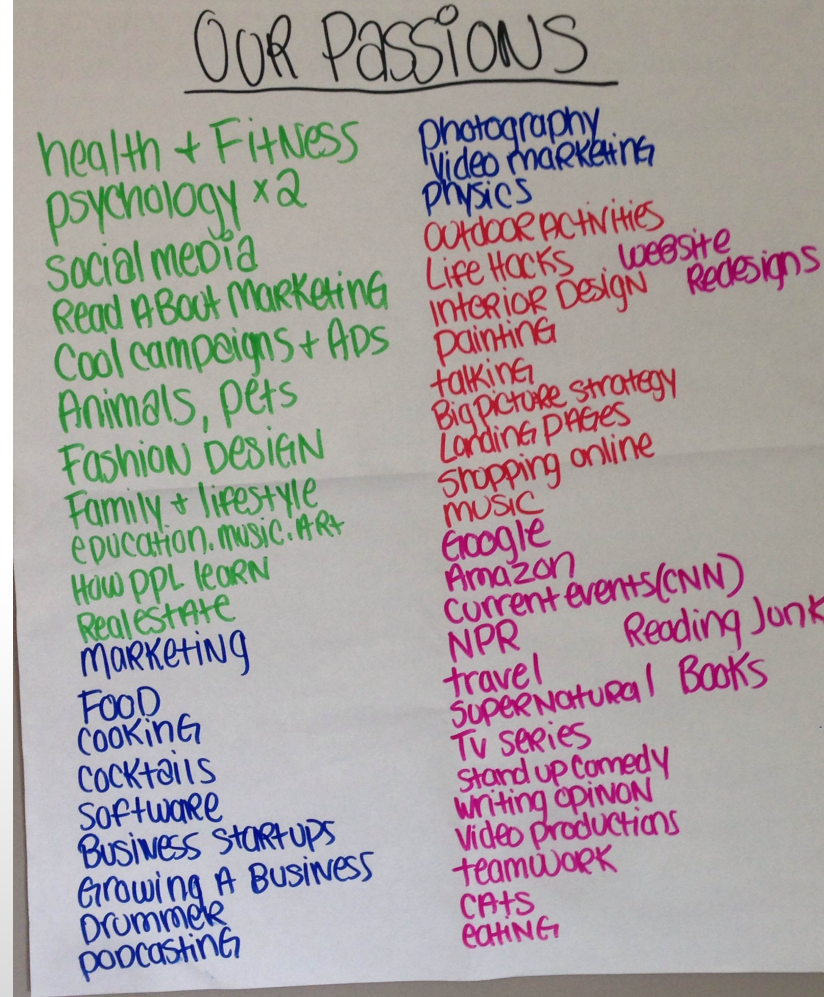 OUR PASSIONS
health + Fitness
psychology x2
social media
Read About Marketing
Cool campaigns + Ads
Animals, pets
Fashion Design
Family + lifestyle
education. music. Art
How ppl learn
Real estate
marketing
Food
cooking
cocktails
software
Business startups
Growing A Business
Drummer
podcasting
photography
Video marketing
physics
outdoor activities
Life Hacks
website
Redesigns
Interior Design
painting
talking
Big picture strategy
Landing pages
shopping online
music
Google
Amazon
current events (CNN)
NPR
Reading Junk
travel
supernatural Books
Tv series
stand up comedy
writing opinon
video productions
teamwork
cats
eating